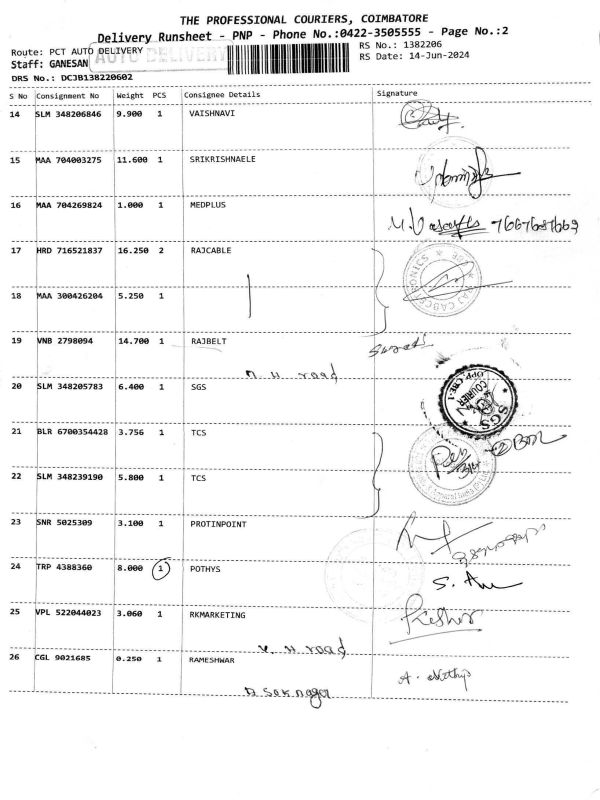 THE PROFESSIONAL COURIERS, COIMBATORE
Delivery Runsheet - PNP - Phone No.:0422-3505555 - Page No.:2
Route: PCT AUTO DELIVERY
AUTO DELIVERY
RS No.: 1382206
Staff: GANESAN
RS Date: 14-Jun-2024
DRS No.: DCJB138220602
S No Consignment No Weight PCS Consignee Details Signature
14 SLM 348206846 9.900 1 VAISHNAVI
15 MAA 704003275 11.600 1 SRIKRISHNAELE
16 MAA 704269824 1.000 1 MEDPLUS
7667687663
17 HRD 716521837 16.250 2 RAJCABLE
18 MAA 300426204 5.250 1
19 VNB 2798094 14.700 1 RAJBELT
n. H road
20 SLM 348205783 6.400 1 SGS
SGS
COURIER
21 BLR 6700354428 3.756 1 TCS
22 SLM 348239190 5.800 1 TCS
23 SNR 5025309 3.100 1 PROTINPOINT
24 TRP 4388360 8.000 1 POTHYS
25 VPL 522044023 3.060 1 RKMARKETING
Kishor
v. H road
26 CGL 9021685 0.250 1 RAMESHWAR